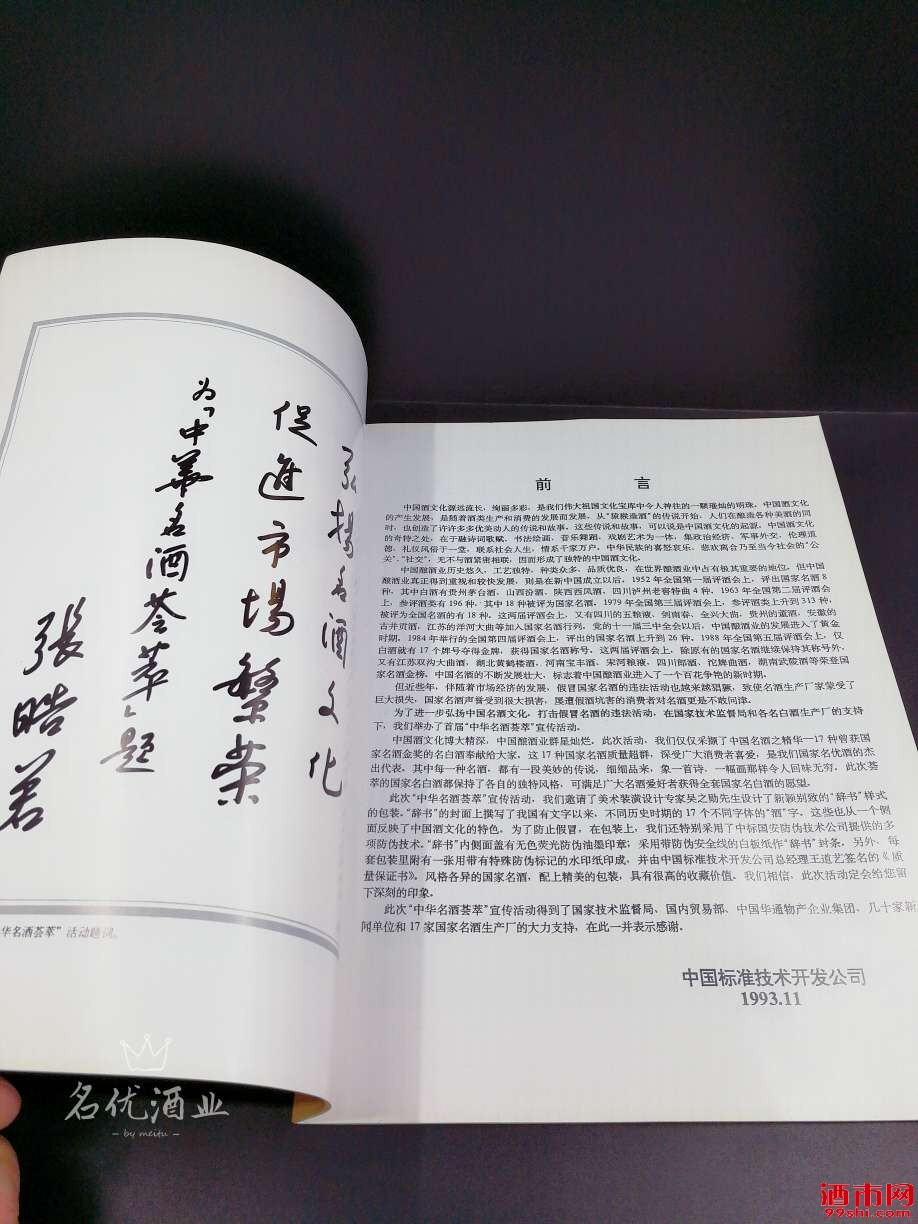 弘扬名酒文化
促进市場繁荣
为“中華名酒荟萃”题
張皓若
华名酒荟萃”活动题词。
前 言
中国酒文化源远流长，绚丽多彩，是我们伟大祖国文化宝库中令人神往的一颗璀灿的明珠，中国酒文化
的产生发展，是随着酒类生产和消费的发展而发展，从“猿猴造酒”的传说开始，人们在酿造各种美酒的同
时，也创造了许许多多优美动人的传说和故事，这些传说和故事，可以说是中国酒文化的起源。中国酒文化
的奇特之处，在于融诗词歌赋、书法绘画、音乐舞蹈、戏剧艺术为一体，集政治经济、军事外交、伦理道
德、礼仪风俗于一堂，联系社会人生，情系千家万户，中华民族的喜怒哀乐、悲欢离合乃至当今社会的“公
关”、“社交”，无不与酒紧密相联，因而形成了独特的中国酒文化。
中国酿酒业历史悠久，工艺独特，种类众多，品质优良，在世界酿酒业中占有极其重要的地位。但中国
酿酒业真正得到重视和较快发展，则是在新中国成立以后，1952 年全国第一届评酒会上，评出国家名酒 8
种，其中白酒有贵州茅台酒，山西汾酒，陕西西凤酒，四川泸州老窖特曲 4 种。1963 年全国第二届评酒会
上，参评酒类有 196 种，其中 18 种被评为国家名酒。1979 年全国第三届评酒会上，参评酒类上升到 313 种，
被评为全国名酒的有 18 种。这两届评酒会上，又有四川的五粮液、剑南春、全兴大曲，贵州的董酒，安徽的
古井贡酒，江苏的洋河大曲等加入国家名酒行列。党的十一届三中全会以后，中国酿酒业的发展进入了黄金
时期。1984 年举行的全国第四届评酒会上，评出的国家名酒上升到 26 种。1988 年全国第五届评酒会上，仅
白酒就有 17 个牌号夺得金牌，获得国家名酒称号。这两届评酒会上，除原有的国家名酒继续保持其称号外，
又有江苏双沟大曲酒，湖北黄鹤楼酒，河南宝丰酒、宋河粮液，四川郎酒、沱牌曲酒，湖南武陵酒等荣登国
家名酒金榜。中国名酒的不断发展壮大，标志着中国酿酒业进入了一个百花争艳的新时期。
但近些年，伴随着市场经济的发展，假冒国家名酒的违法活动也越来越猖獗，致使名酒生产厂家蒙受了
巨大损失，国家名酒声誉受到很大损害，屡遭假酒坑害的消费者对名酒更是不敢问津。
为了进一步弘扬中国名酒文化，打击假冒名酒的违法活动，在国家技术监督局和各名白酒生产厂的支持
下，我们举办了首届“中华名酒荟萃”宣传活动。
中国酒文化博大精深，中国酿酒业群星灿烂。此次活动，我们仅仅采撷了中国名酒之精华—17 种曾获国
家名酒金奖的名白酒奉献给大家，这 17 种国家名酒质量超群，深受广大消费者喜爱，是我们国家优酒的杰
出代表，其中每一种名酒，都有一段美妙的传说，细细品来，象一首诗，一幅画那样令人回味无穷。此次荟
萃的国家名白酒都保持了各自的独特风格，可满足广大名酒爱好者获得全套国家名白酒的愿望。
此次“中华名酒荟萃”宣传活动，我们邀请了美术装潢设计专家吴之勋先生设计了新颖别致的“辞书”样式
的包装。“辞书”的封面上撰写了我国有文字以来，不同历史时期的 17 个不同字体的“酒”字，这些也从一个侧
面反映了中国酒文化的特色。为了防止假冒，在包装上，我们还特别采用了中标国安防伪技术公司提供的多
项防伪技术。“辞书”内侧面盖有无色荧光防伪油墨印章；采用带防伪安全线的白板纸作“辞书”封条，另外，每
套包装里附有一张用带有特殊防伪标记的水印纸印成，并由中国标准技术开发公司总经理王道艺签名的《质
量保证书》。风格各异的国家名酒，配上精美的包装，具有很高的收藏价值。我们相信，此次活动定会给您留
下深刻的印象。
此次“中华名酒荟萃”宣传活动得到了国家技术监督局、国内贸易部、中国华通物产企业集团，几十家新
闻单位和 17 家国家名酒生产厂的大力支持，在此一并表示感谢。
中国标准技术开发公司
1993.11
名优酒业
- by meitu -
酒市网
99shi.com